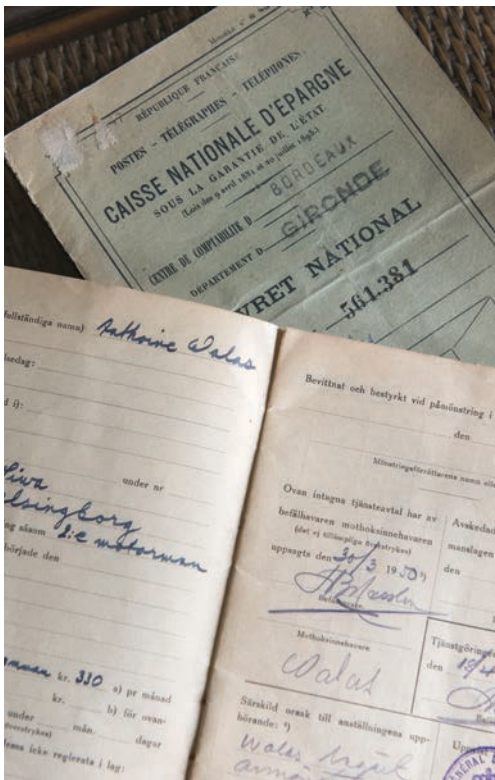 RÉPUBLIQUE FRANÇAISE
POSTES - TÉLÉGRAPHES - TÉLÉPHONES.
CAISSE NATIONALE D'ÉPARGNE
SOUS LA GARANTIE DE L'ÉTAT
(Lois des 9 avril 1881 et 20 juillet 1895.)
CENTRE DE COMPTABILITÉ D BORDEAUX
DÉPARTEMENT D GIRONDE
VRET NATIONAL
561.381
fullständiga namn) Walas
lsedag:
d i):
under nr
elsingborg
ng såsom 2:e motorman
började den
kr. 330 a) pr månad
kr. b) för ovan-
under mån. dagar
överstrykes)
dessa icke reglerats i lag:
Bevittnat och bestyrkt vid påmönstring i
den
Mönstringsförrättarens namn
Ovan intagna tjänsteavtal har av
befälhavaren motboksinnehavaren
(det ej tillämpliga överstrykes)
uppsagts den 30/3 1950
Befälhavare.
Motboksinnehavare.
Walas
Särskild orsak till anställningens upp-
hörande:
Walas
Avskedad
manslagen
den
Tjänstgöring
den